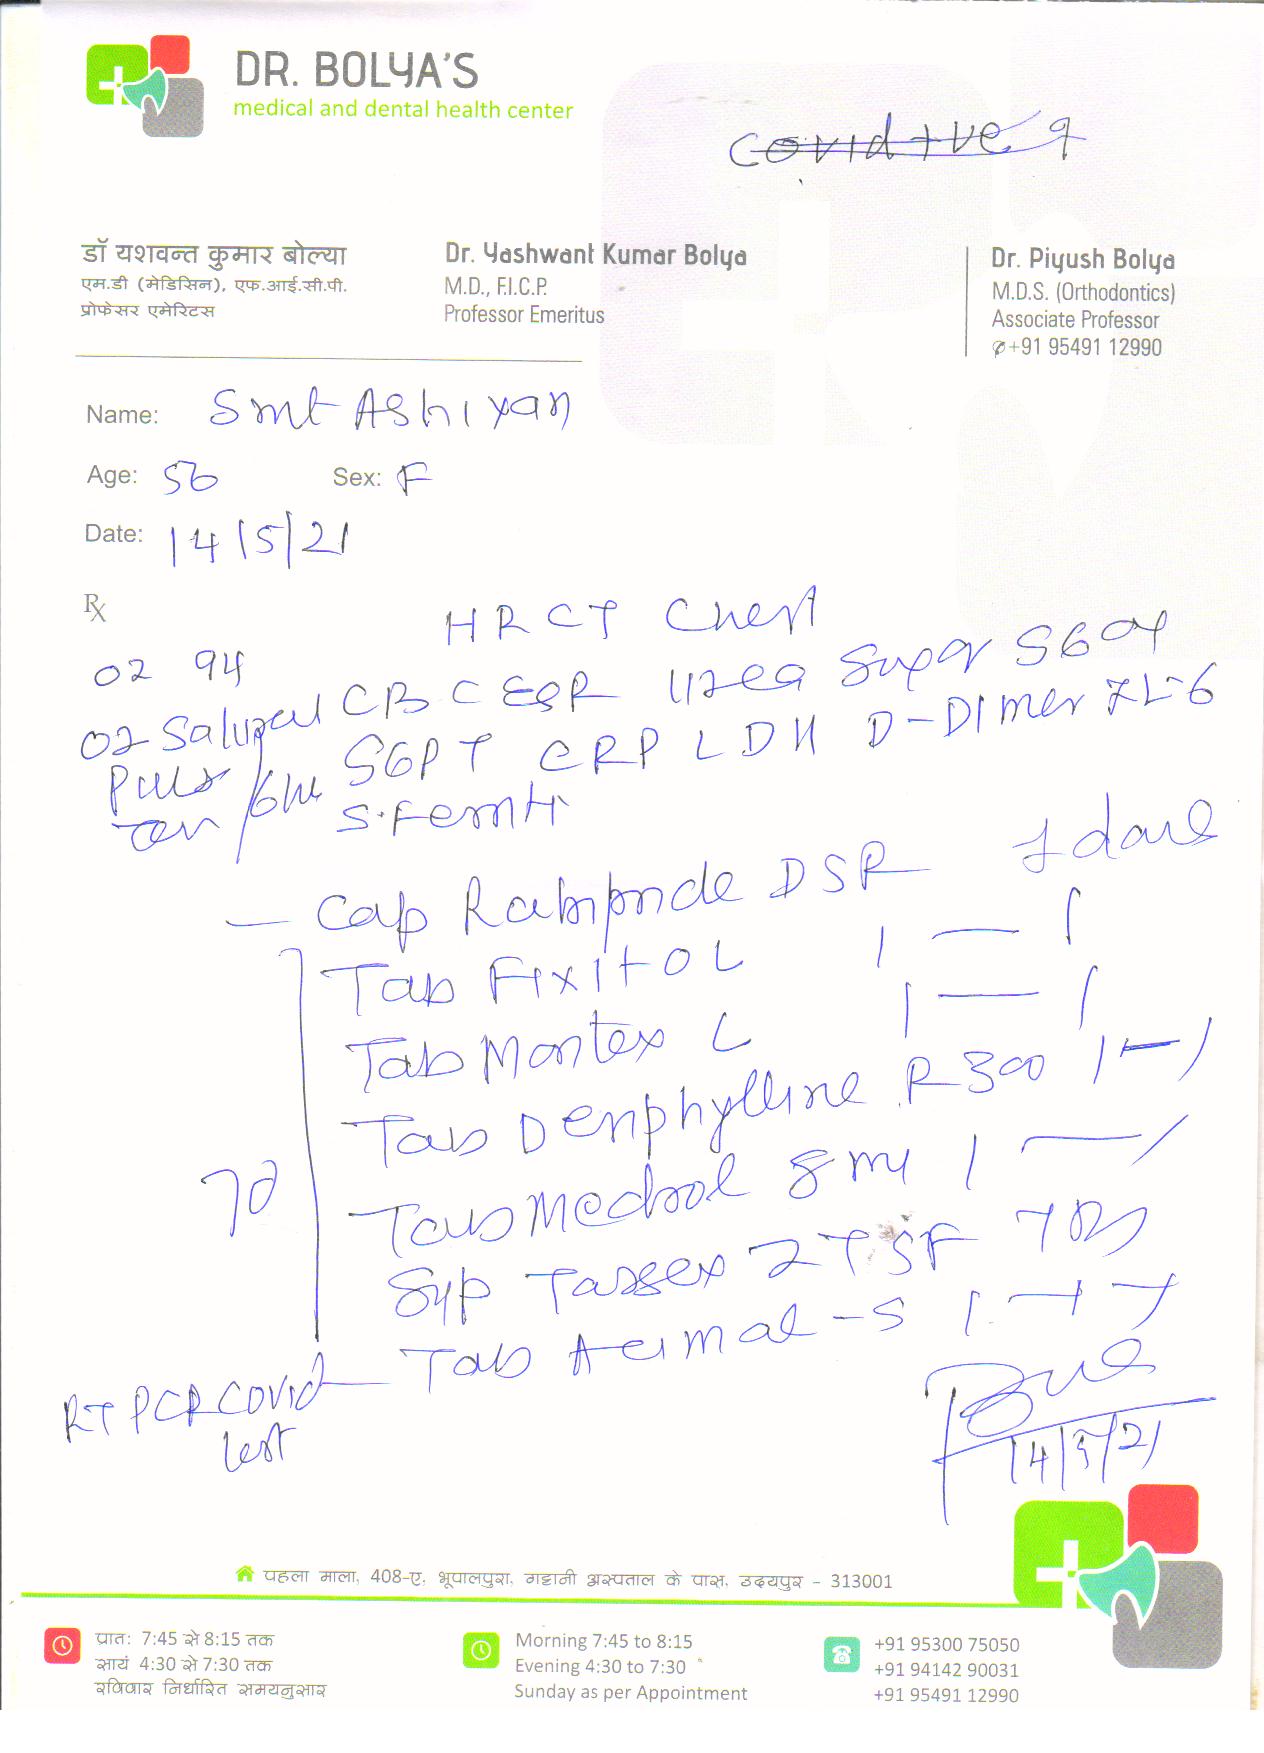 DR. BOLYA'S
medical and dental health center
Covid +ve ?
डॉ यशवन्त कुमार बोल्या
एम.डी (मेडिसिन), एफ.आई.सी.पी.
प्रोफेसर एमेरिटस
Dr. Yashwant Kumar Bolya
M.D., F.I.C.P.
Professor Emeritus
Dr. Piyush Bolya
M.D.S. (Orthodontics)
Associate Professor
+91 95491 12990
Name: Smt Ashiyan
Age: 56 Sex: F
Date: 14/5/21
Rx
HRCT Chest
O2 94
CBC ESR Urea Sugar SGOT
SGPT CRP LDH D-Dimer IL-6
S. Ferriti
O2
Puls
/6hr
Cap DSR 1
Tab Fixitol 1 — 1
Tab Montex L 1 — 1
Tab Denphylline R 300 1 — 1
Tab Medrol 8 mg 1 — 1
Syp Tassex 2 TSF TDS
Tab -S 1
7d
RTPCR Covid
test
14/5/21
पहला माला, 408-ए, भूपालपुरा, गट्टानी अस्पताल के पास, उदयपुर - 313001
प्रातः 7:45 से 8:15 तक
सायं 4:30 से 7:30 तक
रविवार निर्धारित समयनुसार
Morning 7:45 to 8:15
Evening 4:30 to 7:30
Sunday as per Appointment
+91 95300 75050
+91 94142 90031
+91 95491 12990